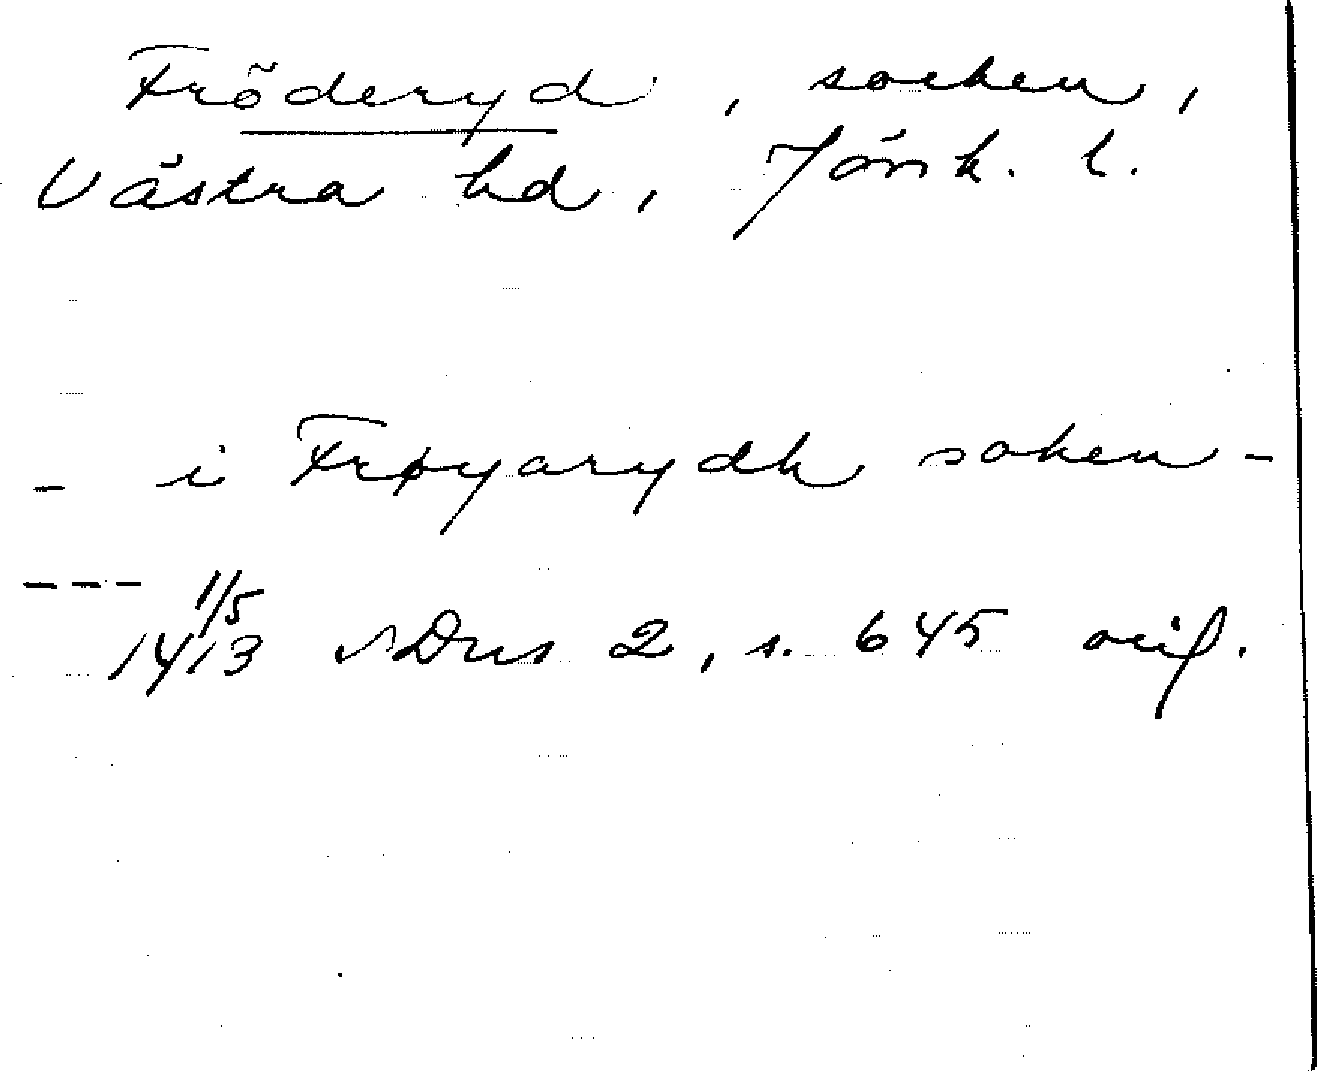 Fröderyd, socken,
Västra hd, Jönk. l.
- i Frøyarydh soken -
--- 1/5
1413 SDns 2, s. 645 orif.